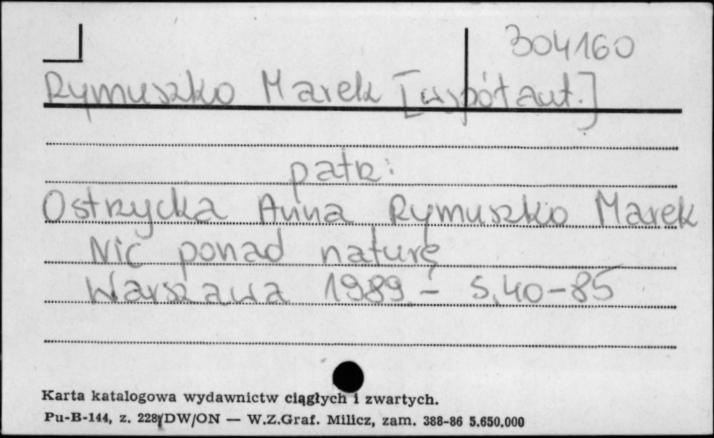 304160
Rymuszko Marek [współaut.]
patrz:
Ostrzycka Anna Rymuszko Marek
Nic ponad naturę
Warszawa 1989 - S. 40-85
Karta katalogowa wydawnictw ciągłych i zwartych.
Pu-B-144, z. 228/DW/ON — W.Z.Graf. Milicz, zam. 388-86 5.650.000